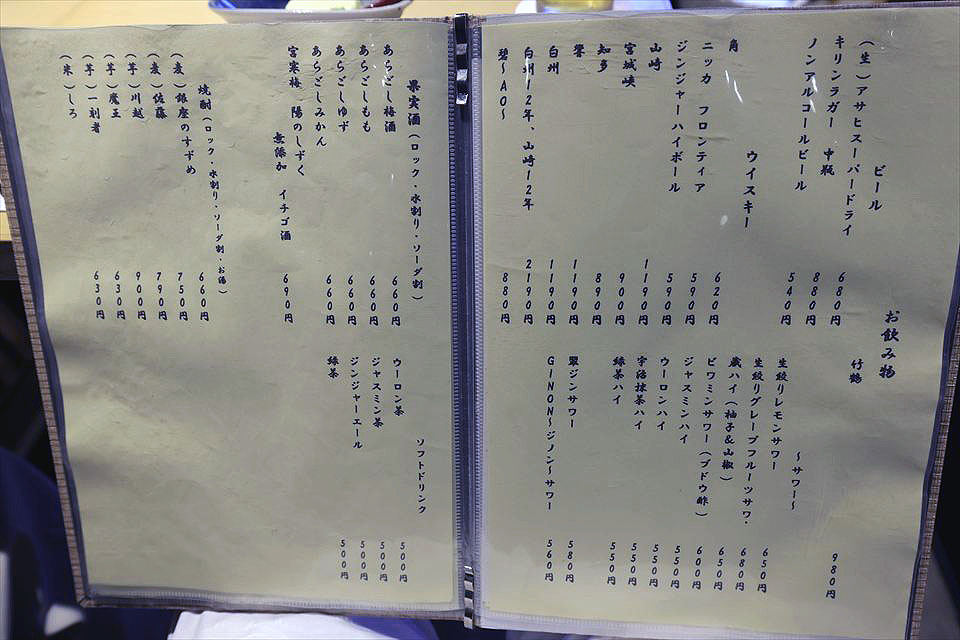 お飲み物
ビール
(生)アサヒスーパードライ 680円
キリンラガー 中瓶 880円
ノンアルコールビール 540円
ウイスキー
角 620円
ニッカ フロンティア 590円
ジンジャーハイボール 590円
山崎 1190円
宮城峡 900円
知多 890円
響 1190円
白州 1190円
白州12年、山崎12年 2190円
碧~AO~ 880円
竹鶴 980円
~サワー~
生絞りレモンサワー 650円
生絞りグレープフルーツサワ・ 680円
蔵ハイ(柚子&山椒) 650円
ビワミンサワー(ブドウ酢) 600円
ジャスミンハイ 550円
ウーロンハイ 550円
宇治抹茶ハイ 550円
緑茶ハイ 550円
翠ジンサワー 580円
GINON~ジノン~サワー 560円
果実酒(ロック・水割り・ソーダ割)
あらごし梅酒 660円
あらごしもも 660円
あらごしゆず 660円
あらごしみかん 660円
宮寒梅 陽のしずく
無添加 イチゴ酒 690円
焼酎(ロック・水割り・ソーダ割・お湯)
(麦)銀座のすずめ 660円
(麦)佐藤 750円
(芋)川越 790円
(芋)魔王 900円
(芋)一刻者 630円
(米)しろ 630円
ソフトドリンク
ウーロン茶 500円
ジャスミン茶 500円
ジンジャーエール 500円
緑茶 500円